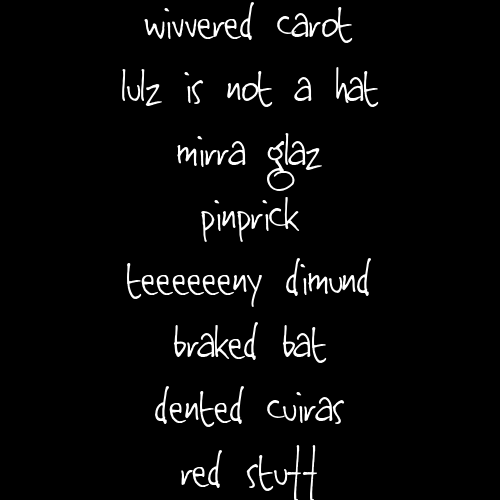 wivvered carot
lulz is not a hat
mirra glaz
pinprick
teeeeeeny dimund
braked bat
dented cuiras
red stuff